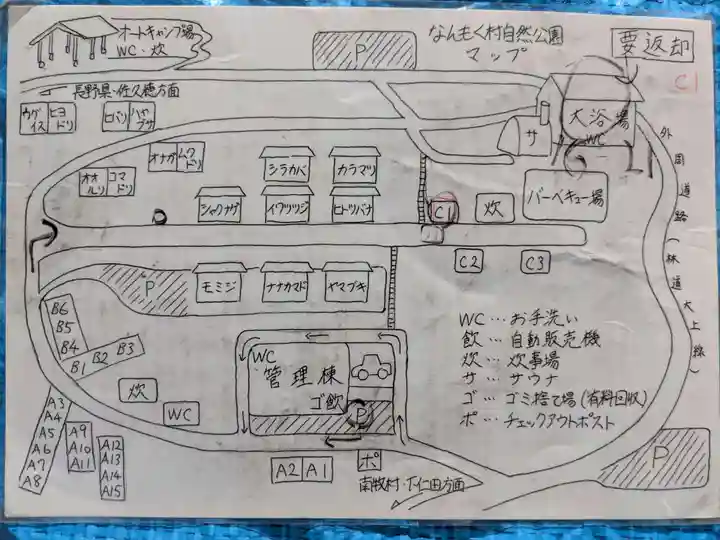 オートキャンプ場
WC・炊
P
なんもく村自然公園
マップ
要返却
C1
← 長野県・佐久穂方面
ウグイス
ヒヨドリ
ヒバリ
ハヤブサ
大浴場
WC
サ
外周道路(林道大上線)
オナガ
ムクドリ
オオルリ
コマドリ
シラカバ
カラマツ
シャクナゲ
イワツツジ
ヒトツバナ
C1
炊
バーベキュー場
C2
C3
P
モミジ
ナナカマド
ヤマブキ
B6
B5
B4
B1
B2
B3
炊
WC
WC
管理棟
ゴ飲
P
WC…お手洗い
飲…自動販売機
炊…炊事場
サ…サウナ
ゴ…ゴミ捨て場(有料回収)
ポ…チェックアウトポスト
A3
A4
A5
A6
A7
A8
A9
A10
A11
A12
A13
A14
A15
A2
A1
ポ
南牧村・下仁田方面
P